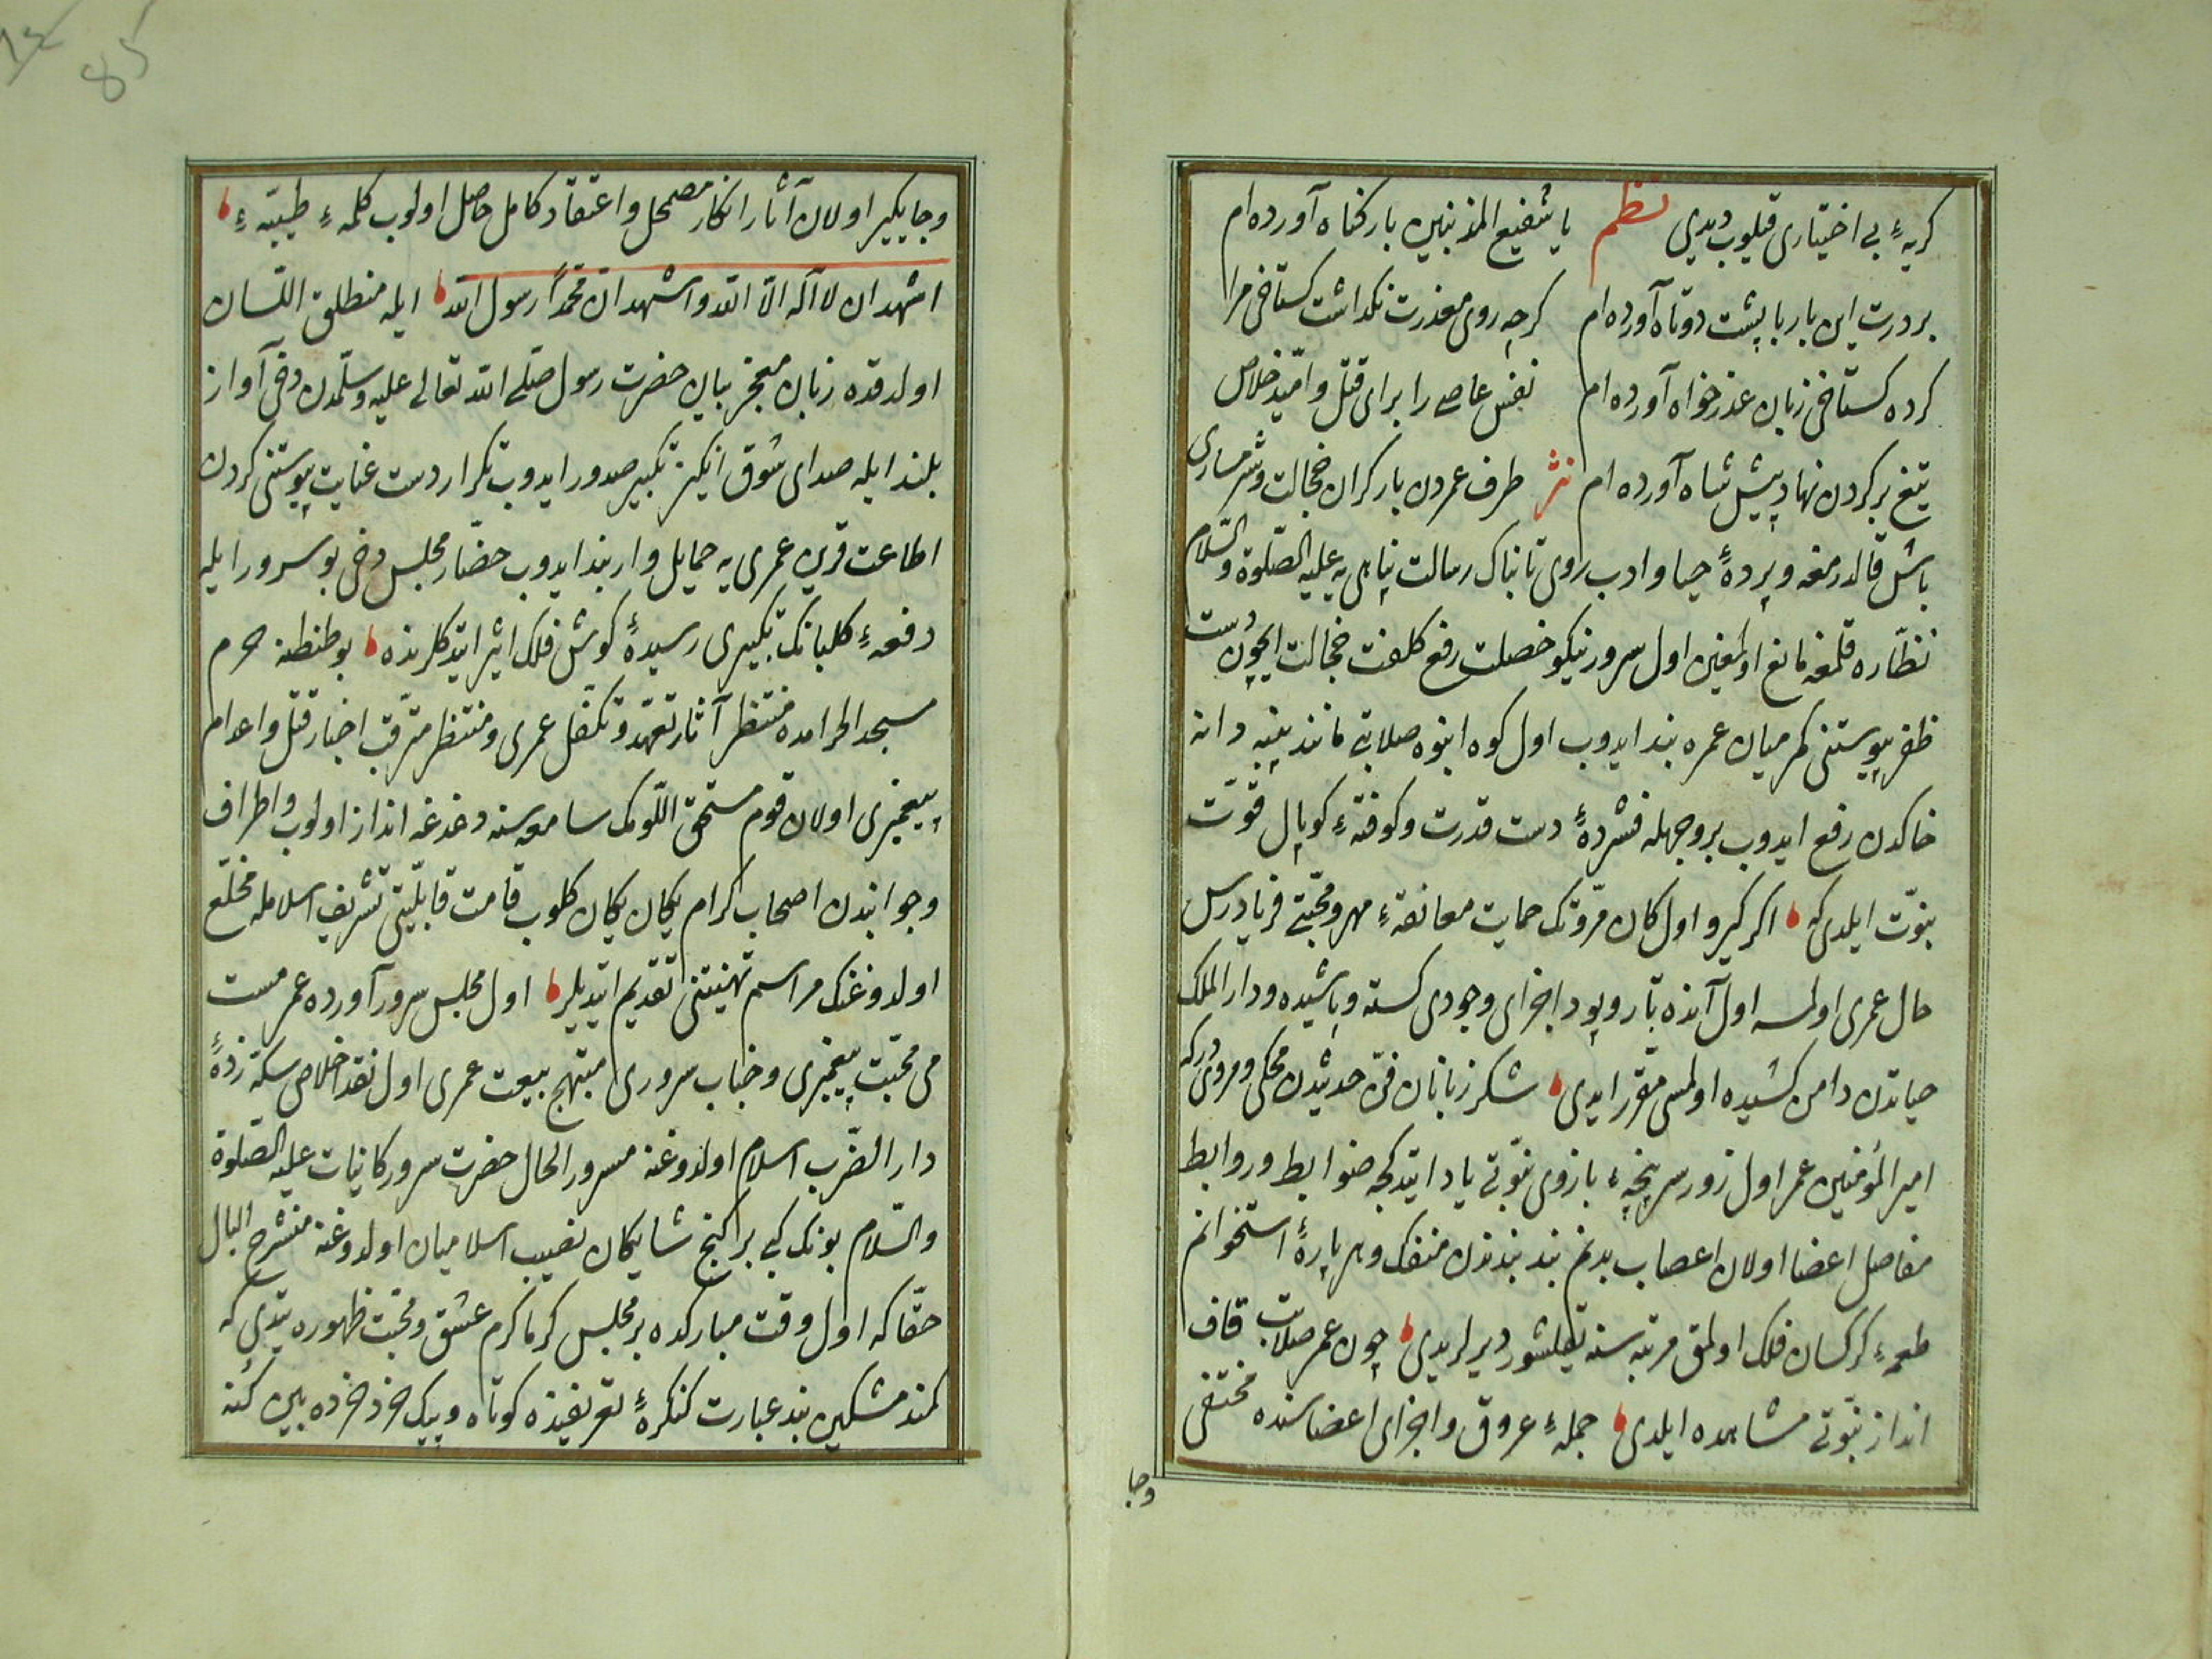 كريهٔ بى اختيارى قيلوب ديدى نظم يا شفيع المذنبين بار كناه آورده ام
بر درت اين بار با پشت دوتاه آورده ام كرچه روى معذرت نكذاشت كستاخى مرا
كرده كستاخى زبان عذر خواه آورده ام نفس عاصى را براى قتل واميد خلاص
تيغ بر كردن نهاد پيش شاه آورده ام نثر طرف عمردن بار كران خجالت وشرمسارى
باش قالدرمغه وپردهٔ حيا وادب روى تابناك رسالت پناهى يه عليه الصلوة والسلام
نظاره قلمغه مانع اولمغين اول سرور نيكو خصلت رفع كلفت خجالت ايچون دست
ظفر پيوستنى كمر ميان عمره بند ايدوب اول كوه انبوه صلابتى مانند پنبه دانه
خاكدن رفع ايدوب بر وجهله فشردهٔ دست قدرت وكوفتهٔ كوپال قوت
نبوت ايلدى كه اكر كيرو اول كان مروتك حمايت معانقهٔ مهر ومحبتى فريادرس
حال عمرى اولمسه اول آنده تار وپود اجزاى وجودى كسسته وپاشيده ودار الملك
حياتدن دامن كشيده اولمسى مقرر ايدى شكر زبانان فن حديثدن محكى ومرويدركه
امير المؤمنين عمر اول زور سرپنجهٔ بازوى نبوتى ياد ايتدكجه ضوابط وروابط
مفاصل اعضا اولان اعصاب بدنم بند بندندن منفك وهر پارهٔ استخوانم
طعمهٔ كركسان فلك اولمق مرتبه سنه يقلشور دير لريدى چون عمر صلابت قاف
انداز نبوتى مشاهده ايلدى جملهٔ عروق واجزاى اعضاسنده مختفى
وجا
وجايكير اولان آثار انكار مضمحل واعتقاد كامل حاصل اولوب كلمهٔ طيبهٔ
اشهد ان لا اله الا الله واشهد ان محمدا رسول الله ايله منطلق اللسان
اولدقده زبان معجز بيان حضرت رسول صلى الله تعالى عليه وسلمدن دخى آواز
بلند ايله صداى شوق انكيز تكبير صدور ايدوب تكرار دست عنايت پيوستنى كردن
اطاعت قرين عمرى يه حمايل وار بند ايدوب حضار مجلس دخى بو سرور ايله
دفعهٔ كلبانك تكبيرى رسيدهٔ كوش فلك اثير ايتدكلرنده بو طنطنه حرم
مسجد الحرامده منتظر آثار تعهد وتكفل عمرى ومنتظر مترقب اخبار قتل واعدام
پيغمبرى اولان قوم مستحق اللومك سامعه سنه دغدغه انداز اولوب واطراف
وجوانبدن اصحاب كرام يكان يكان كلوب قامت قابليتى تشريف اسلامله مخلع
اولدوغنك مراسم تهنيتنى تقديم ايتديلر اول مجلس سرور آورده عمر مست
مى محبت پيغمبرى وجناب سرورى مبتهج بيعت عمرى اول نقد اخلاصى سكه زدهٔ
دار الضرب اسلام اولدوغنه مسرور الحال حضرت سرور كائنات عليه الصلوة
والسلام بونك كبى بر كنج شايكان نصيب اسلاميان اولدوغنه منشرح البال
حقا كه اول وقت مباركده بر مجلس كرماكرم عشق ومحبت ظهوره يتدى كه
كمند مشكين بند عبارت كنكرهٔ تعريفنده كوتاه وپيك خرد خرده بين كنه
85